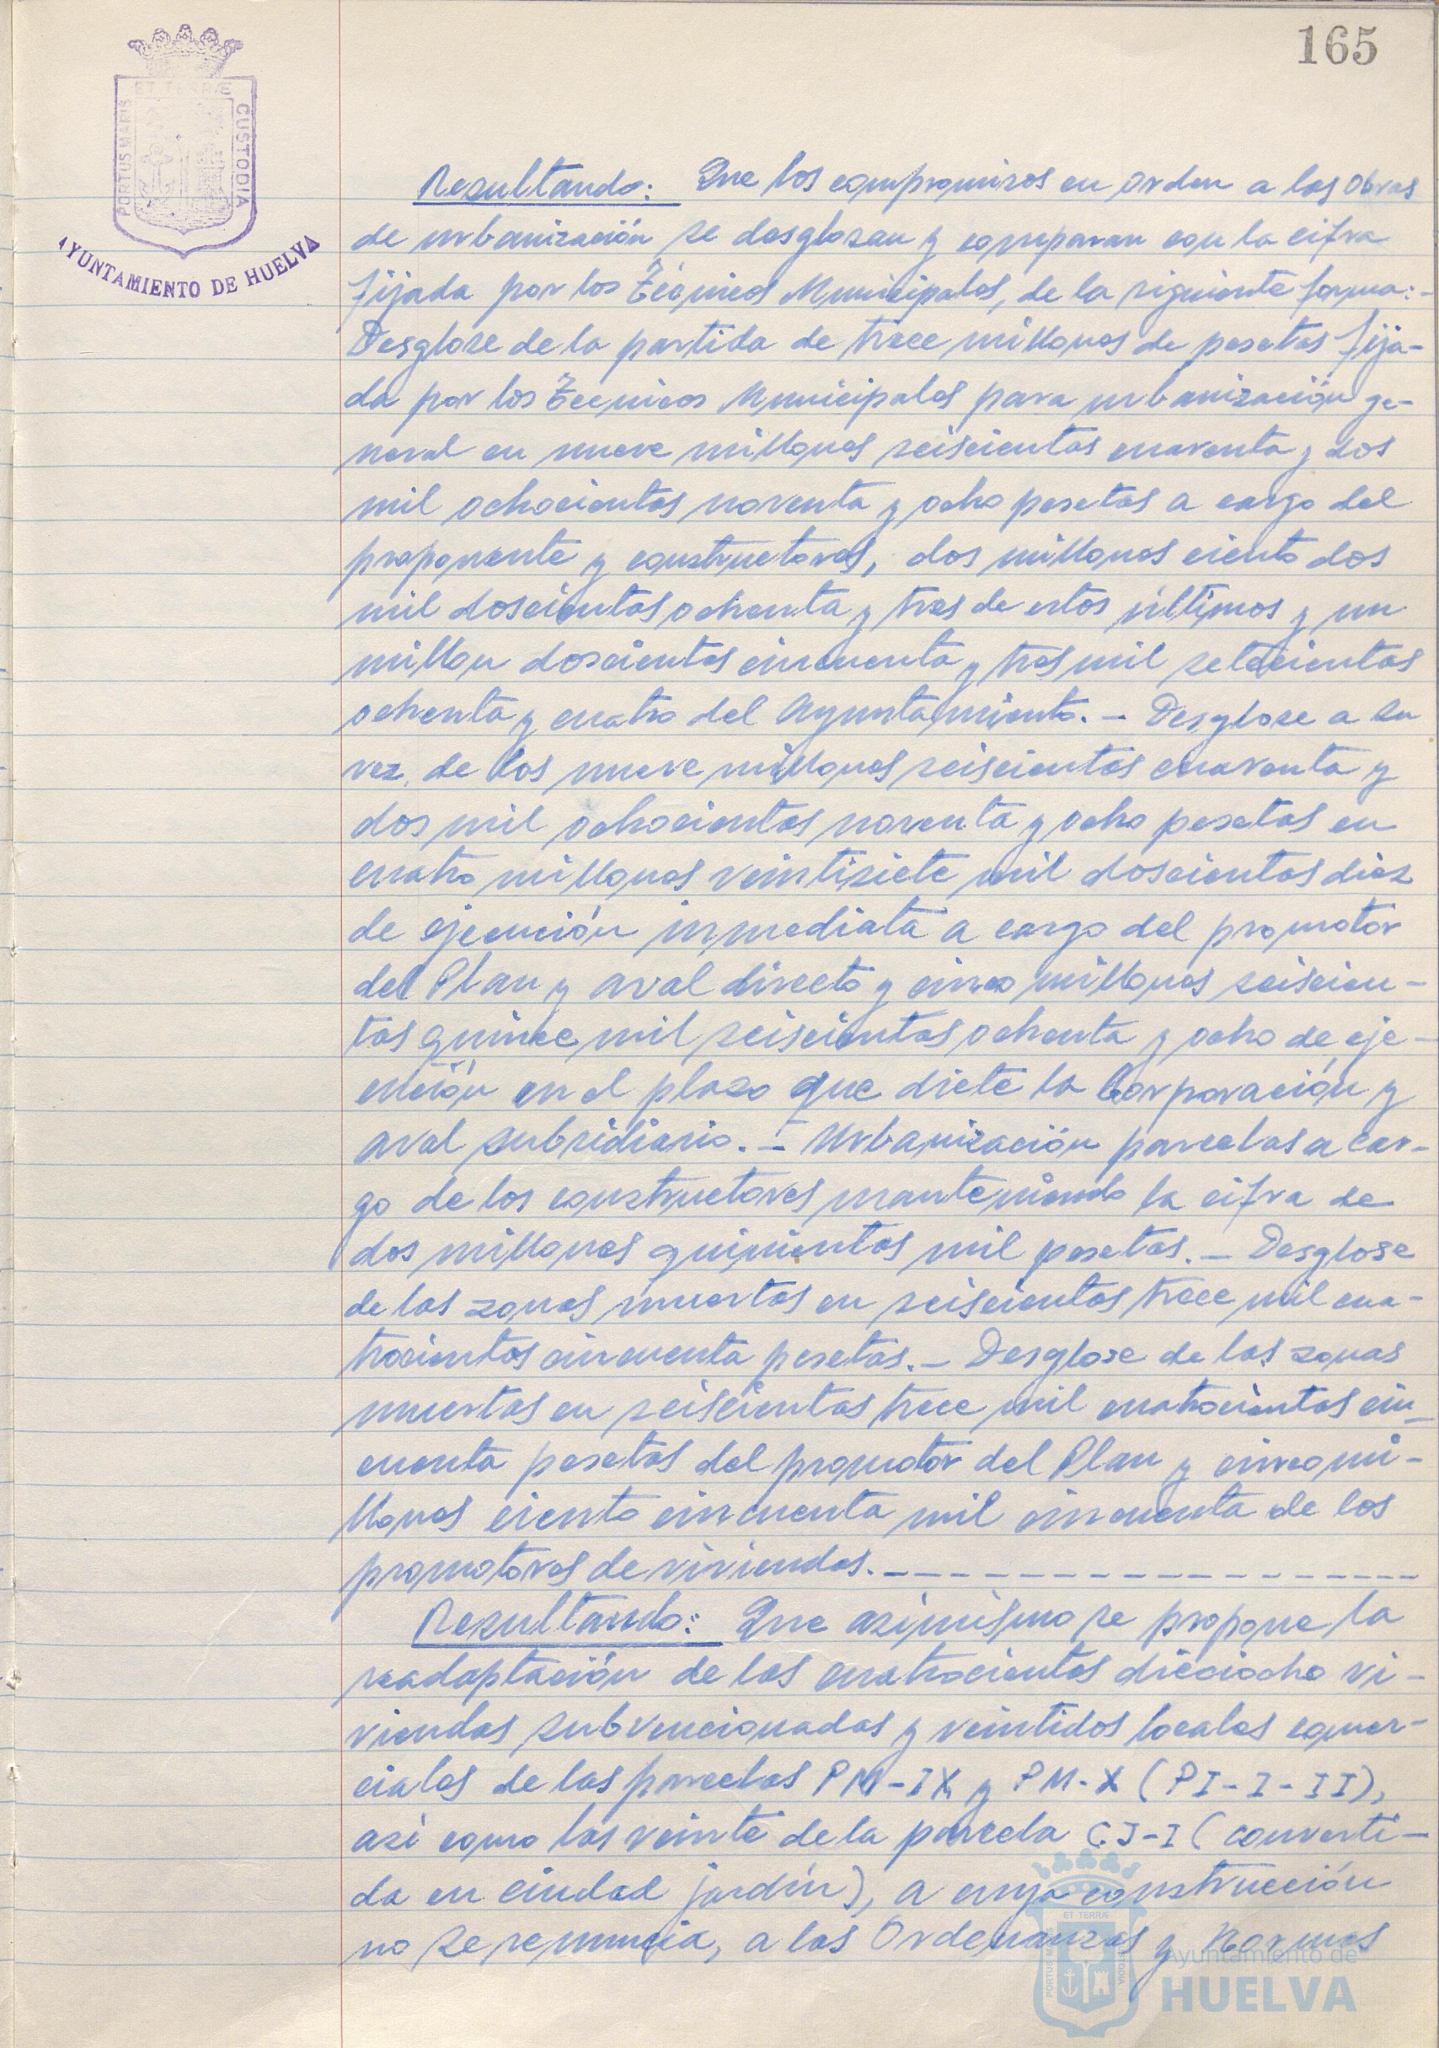 165
ET TERRÆ
PORTUS MARIS
CUSTODIA
AYUNTAMIENTO DE HUELVA
Resultando: Que los compromisos en orden a las obras
de urbanización se desglosan y comparan con la cifra
fijada por los Técnicos Municipales, de la siguiente forma:-
Desglose de la partida de trece millones de pesetas fija-
da por los Técnicos Municipales para urbanización ge-
neral en nueve millones seiscientas cuarenta y dos
mil ochocientas noventa y ocho pesetas a cargo del
proponente y constructores, dos millones ciento dos
mil doscientas ochenta y tres de estos últimos y un
millon doscientas cincuenta y tres mil setecientas
ochenta y cuatro del Ayuntamiento.- Desglose a su
vez, de los nueve millones seiscientas cuarenta y
dos mil ochocientas noventa y ocho pesetas en
cuatro millones veintisiete mil doscientas diez
de ejecución inmediata a cargo del promotor
del Plan y aval directo y cinco millones seiscien-
tas quince mil seiscientas ochenta y ocho de eje-
cución en el plazo que dicte la Corporación y
aval subsidiario.- Urbanización parcelas a car-
go de los constructores manteniendo la cifra de
dos millones quinientas mil pesetas.- Desglose
de las zonas muertas en seiscientas trece mil cua-
trocientas cincuenta pesetas.- Desglose de las zonas
muertas en seiscientas trece mil cuatrocientas cin-
cuenta pesetas del promotor del Plan y cinco mi-
llones ciento cincuenta mil cincuenta de los
promotores de viviendas.-------------------
Resultando: Que asimismo se propone la
readaptación de las cuatrocientas dieciocho vi-
viendas subvencionadas y veintidos locales comer-
ciales de las parcelas PM-IX y PM-X (PI-I-II),
asi como las veinte de la parcela CJ-I (converti-
da en ciudad jardín), a cuya construcción
no se renuncia, a las Ordenanzas y Normas
ET TERRÆ
PORTUS MARIS
CUSTODIA
Ayuntamiento de
HUELVA